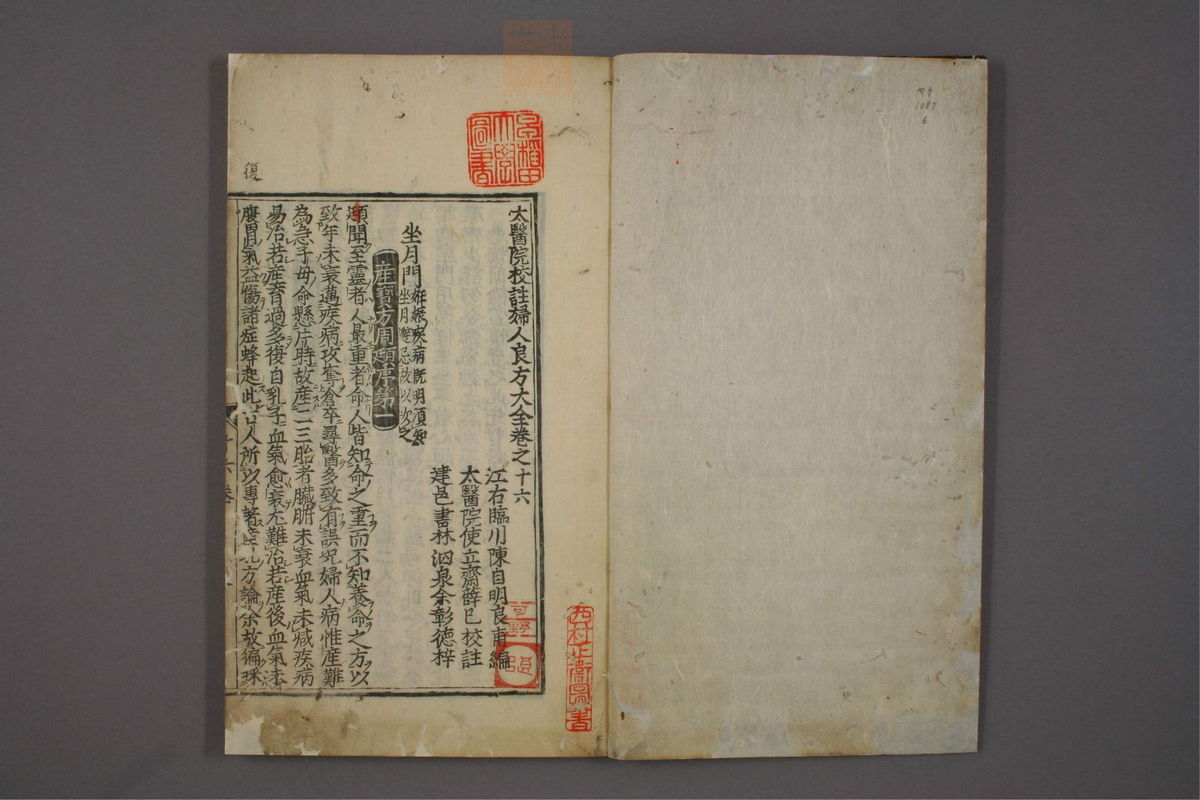 太醫院校註婦人良方大全卷之十六
江右臨川陳自明良甫編
太醫院使立齋薛己校註
建邑書林泗泉余彰德梓
坐月門
妊娠疾病既明須知
坐月避忌故以次之
産寶方周頲序第一
頲聞至靈者人最重者命人皆知命之重而不知養命之方以
致年未衰邁疾病攻奪倉卒尋醫多致有誤况婦人病惟産難
為急子母命懸片時故産二三胎者臟腑未衰血氣未減疾病
易治若産育過多復自乳子血氣愈衰尤難治若産後血氣未
復胃氣益傷諸症蜂起此古人所以專著産
方論余故徧採
復
早稻田
大學
圖書
1087
6